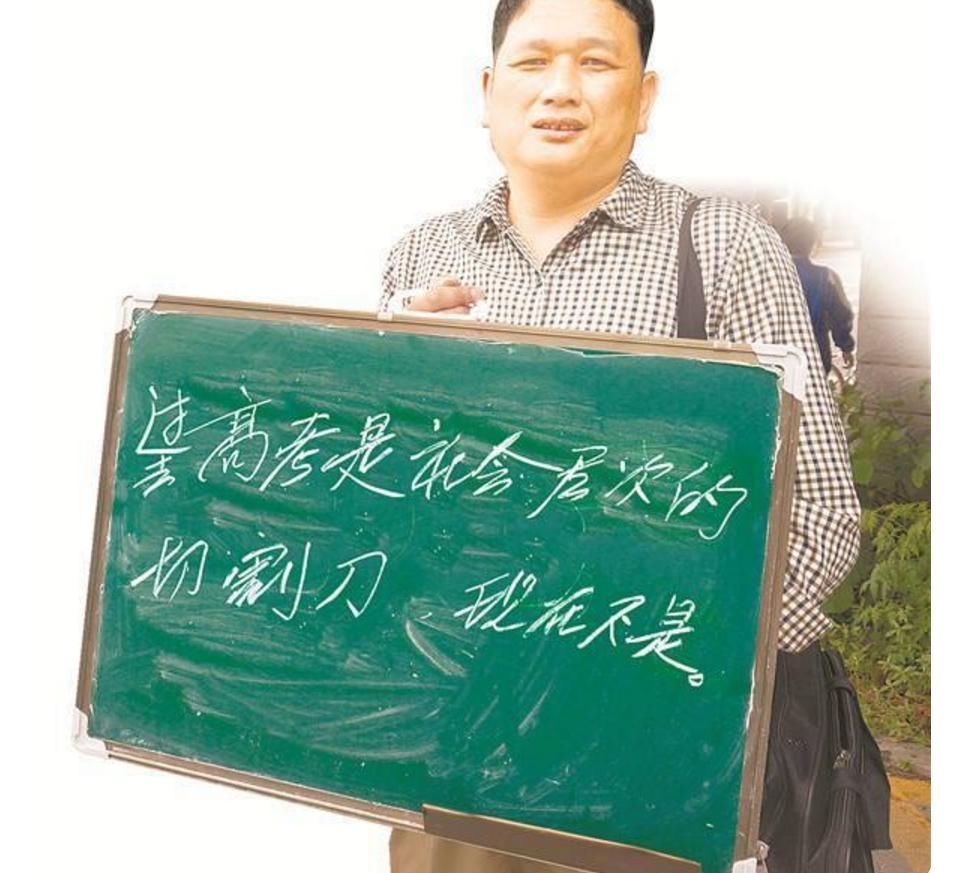 过去高考是社会层次的
切割刀、现在不是。